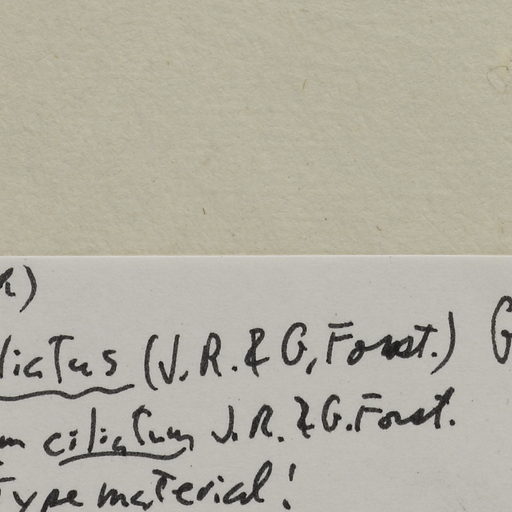 liatus (J. R. & G, Forst.) G
m ciliatum J. R. & G. Forst.
Type material!